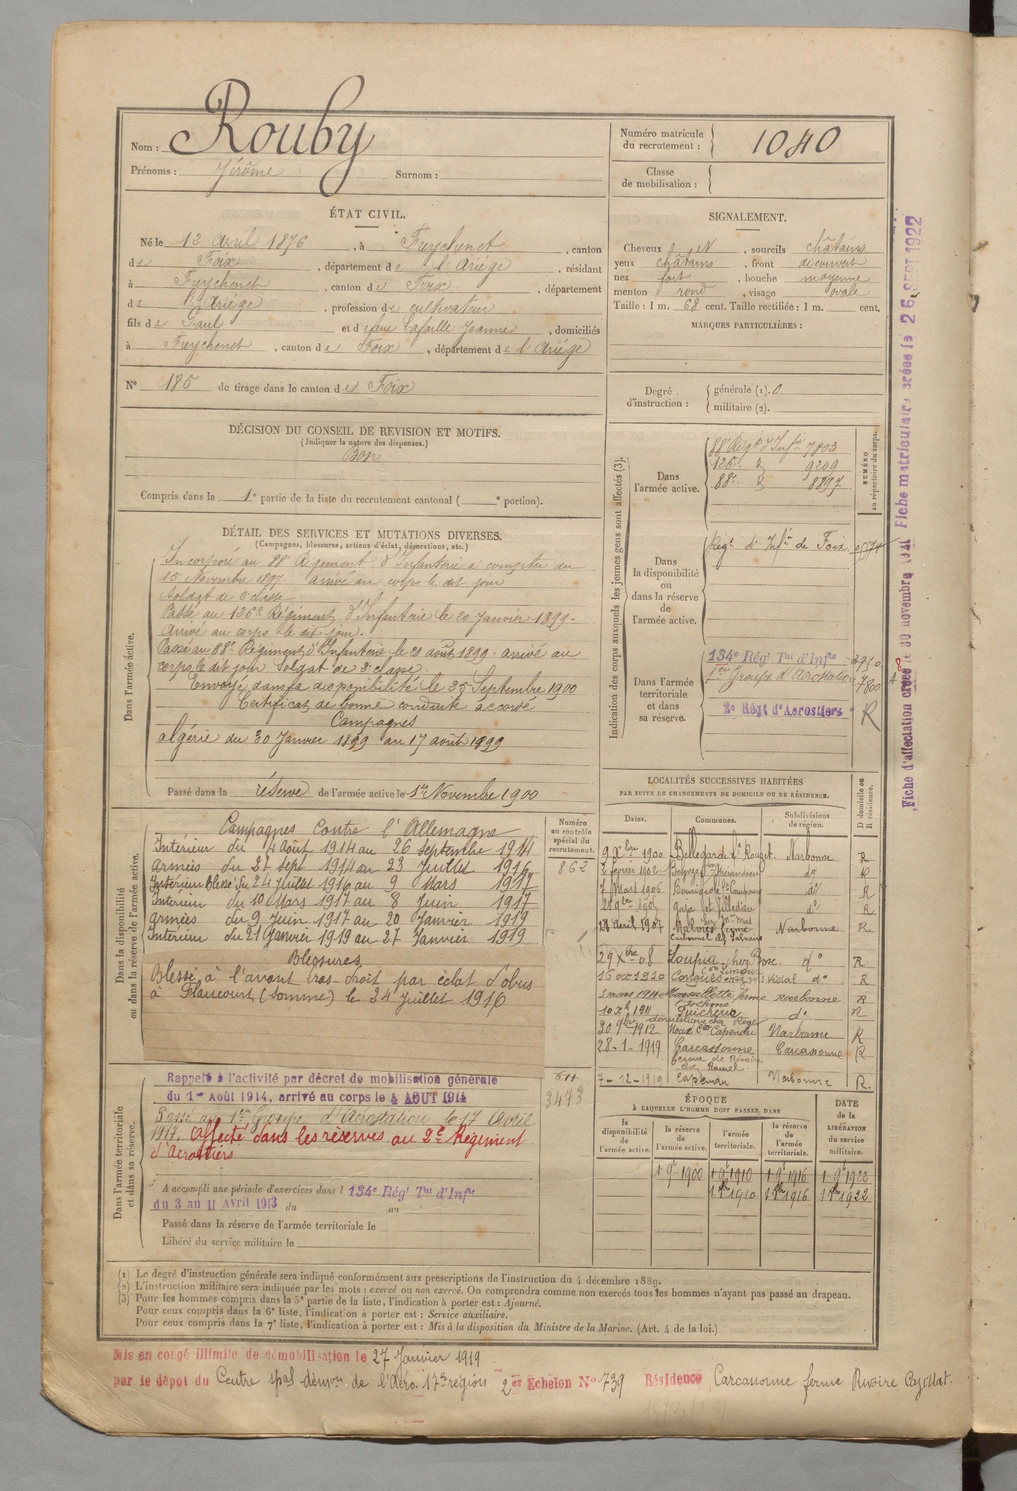 Nom : Rouby
Prénoms : Jérôme Surnom :
Numéro matricule du recrutement : 1040
Classe de mobilisation :
ÉTAT CIVIL.
Né le 12 avril 1876, à, canton
de Foix, département de l'Ariège, résidant
à, canton de Foix, département
de l'Ariège, profession de cultivateur
fils de Paul et de feue Lafaille Jeanne, domiciliés
à, canton de Foix, département de l'Ariège
N° 185 de tirage dans le canton de Foix
SIGNALEMENT.
Cheveux N, sourcils châtains
yeux châtains, front découvert
nez fort, bouche moyenne
menton rond, visage ovale
Taille : 1 m. 68 cent. Taille rectifiée : 1 m. cent.
MARQUES PARTICULIÈRES :
Degré d'instruction : générale (1). 0
militaire (2).
DÉCISION DU CONSEIL DE REVISION ET MOTIFS.
(Indiquer la nature des dispenses.)
Bon
Compris dans la 1e partie de la liste du recrutement cantonal ( e portion).
DÉTAIL DES SERVICES ET MUTATIONS DIVERSES.
(Campagnes, blessures, actions d'éclat, décorations, etc.)
Dans l'armée active.
Incorporé au 88e Régiment d'Infanterie à compter du
15 Novembre 1897. arrivé au corps le dit jour
Soldat de 2e classe
Passé au 126e Régiment d'Infanterie le 20 Janvier 1899 -
Arrivé au corps le dit jour.
Passé au 88e Régiment d'Infanterie le 20 août 1899 - arrivé au
corps le dit jour soldat de 2e classe
Envoyé dans la disponibilité le 25 Septembre 1900
Certificat de bonne conduite accordé
Campagnes
Algérie du 30 Janvier 1899 au 17 août 1899
Passé dans la réserve de l'armée active le 1er Novembre 1900
Indication des corps auxquels les jeunes gens sont affectés (3).
NUMÉRO au répertoire du corps.
Dans l'armée active.
88e Régt d'Infie 7803
126e d° 9209
88e d° 8897
Dans la disponibilité ou dans la réserve de l'armée active.
Régt d'Infie de Foix
Dans l'armée territoriale et dans sa réserve.
134e Régt Tal d'Infie 3750
1er Groupe d'Aérostation 7800
2e Régt d'Aérostiers R
Dans la disponibilité ou dans la réserve de l'armée active.
Numéro au contrôle spécial du recrutement.
862
Campagnes Contre l'Allemagne
Intérieur du 4 Août 1914 au 26 septembre 1914
Armées du 27 sept 1914 au 23 Juillet 1916
Intérieur Blessé du 24 Juillet 1916 au 9 Mars 1917
Intérieur du 10 Mars 1917 au 8 Juin 1917
Armées du 9 Juin 1917 au 20 Janvier 1919
Intérieur du 21 Janvier 1919 au 27 Janvier 1919
Blessures
Blessé à l'avant bras droit par éclat d'obus
à Flaucourt (Somme) le 24 Juillet 1916
LOCALITÉS SUCCESSIVES HABITÉES
PAR SUITE DE CHANGEMENTS DE DOMICILE OU DE RÉSIDENCE.
Dates. Communes. Subdivisions de région. D domicile ou R résidence.
9 Xbre 1900 Narbonne R
2 février 1902 d° R
7 Mars 1906 d° R
d° R
28 avril 1907 Narbonne R
29 Xbre 08 Loupia chez Bose d° R
15 oct 1910 d° R
3 mars 1911 Marseillette ferme Narbonne R
10 Xbre 1911 Puichéric d°
1912 Capendu Narbonne R
28-1-1919 Carcassonne Carcassonne R
ferme de Rivoire
7-12-1910 Capendu Narbonne R.
Dans l'armée territoriale et dans sa réserve.
Rappelé à l'activité par décret de mobilisation générale
du 1er Août 1914, arrivé au corps le 4 AOUT 1914
Passé au 1er Groupe d'Aérostation le 17 Avril
1917. Affecté dans les réserves au 2e Régiment
d'Aérostiers
3473
A accompli une période d'exercices dans l 134e Régt Tal d'Infie
du 3 au 11 Avril 1913 du au
Passé dans la réserve de l'armée territoriale le
Libéré du service militaire le
ÉPOQUE À LAQUELLE L'HOMME DOIT PASSER DANS
DATE de la LIBÉRATION du service militaire.
la disponibilité de l'armée active. la réserve de l'armée active. l'armée territoriale. la réserve de l'armée territoriale.
1 9e 1900 1 9e 1910 1 9e 1916 1 9e 1922
1 1910 1 1916 1 1922
(1) Le degré d'instruction générale sera indiqué conformément aux prescriptions de l'instruction du 4 décembre 1889.
(2) L'instruction militaire sera indiquée par les mots : exercé ou non exercé. On comprendra comme non exercés tous les hommes n'ayant pas passé au drapeau.
(3) Pour les hommes compris dans la 5e partie de la liste, l'indication à porter est : Ajourné.
Pour ceux compris dans la 6e liste, l'indication à porter est : Service auxiliaire.
Pour ceux compris dans la 7e liste, l'indication à porter est : Mis à la disposition du Ministre de la Marine. (Art. 4 de la loi.)
Mis en congé illimité de démobilisation le 27 Janvier 1919
par le dépôt du Centre spal démon. de l'Aéro. 17e région 2er Echelon N° 739 Résidence Carcassonne ferme Rivoire
Fiche d'affectation créée le 30 novembre 1921 Fiche matriculaire créée le 26 SEPT 1922